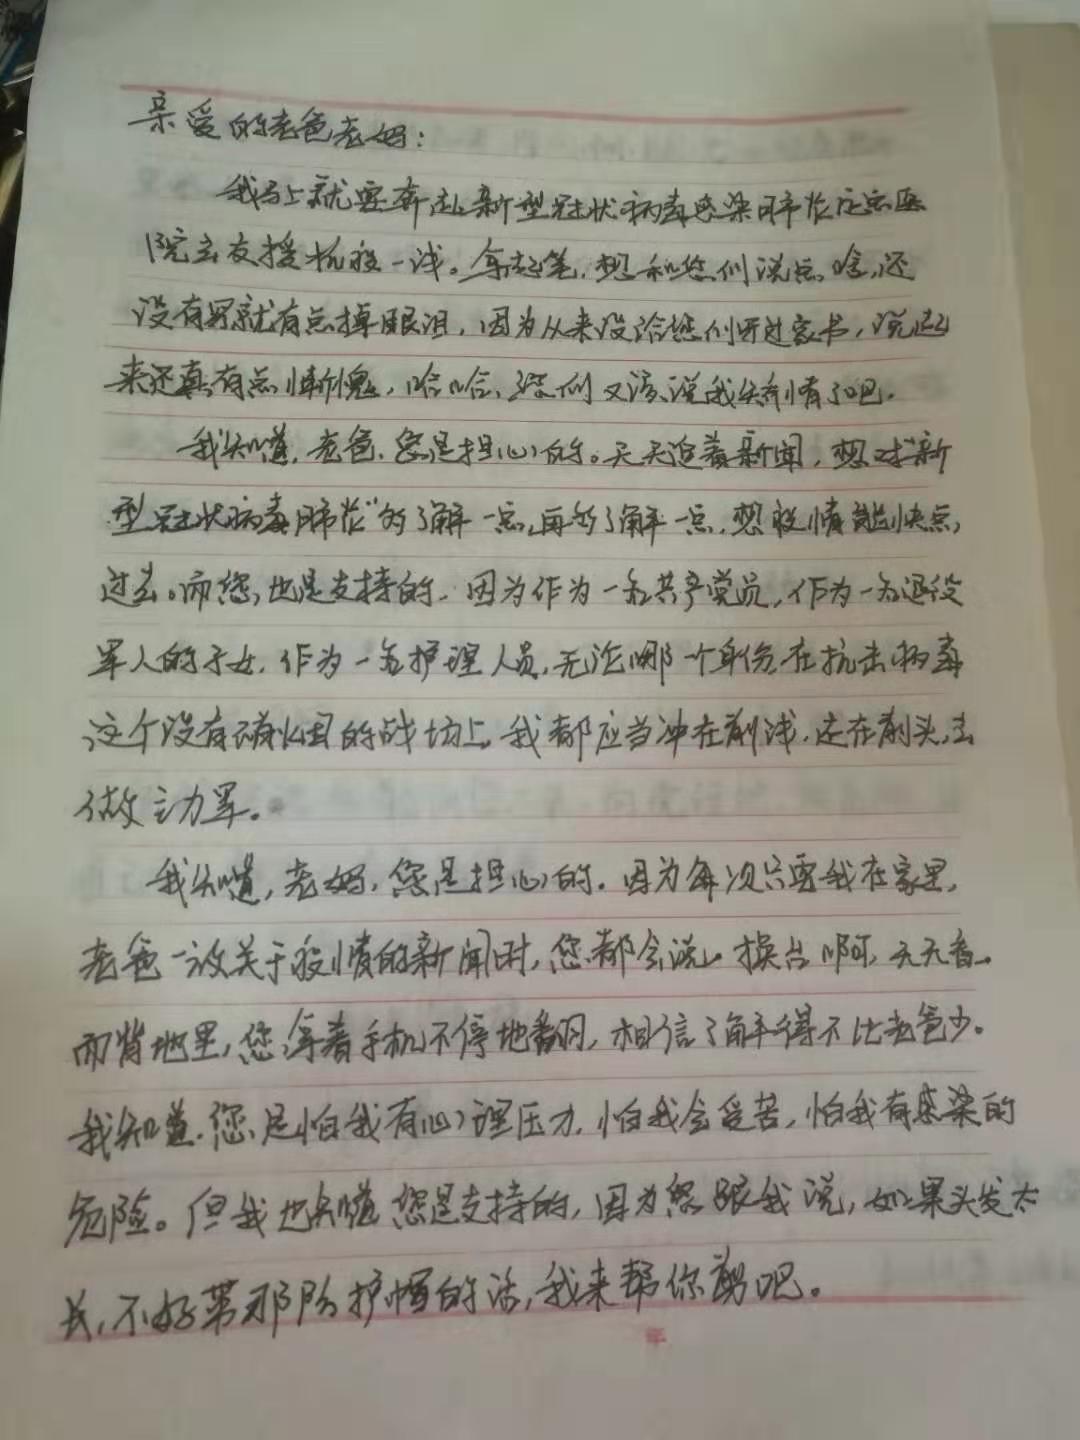 亲爱的老爸老妈：
我马上就要奔赴新型冠状病毒感染肺炎定点医
院去支援抗疫一线。拿起笔，想和您们说点啥，还
没有写就有点掉眼泪，因为从来没给您们写过家书，说起
来还真有点惭愧，哈哈，您们又该说我矫情了吧。
我知道，老爸，您是担心的。天天追着新闻，想对“新
型冠状病毒肺炎”的了解一点，再多了解一点，想疫情能快点
过去。而您，也是支持的，因为作为一名共产党员，作为一名退役
军人的子女，作为一名护理人员，无论哪个身份，在抗击病毒
这个没有硝烟的战场上，我都应当冲在前线，走在前头，去
做主力军。
我知道，老妈，您是担心的。因为每次只要我在家里，
老爸一放关于疫情的新闻时，您都会说，换台啊，天天看。
而背地里，您拿着手机不停地翻，相信了解得不比老爸少。
我知道，您是怕我有心理压力，怕我会受苦，怕我有感染的
危险。但我也知道您是支持的，因为您跟我说，如果头发太
长，不好带那防护帽的话，我来帮你剪吧。